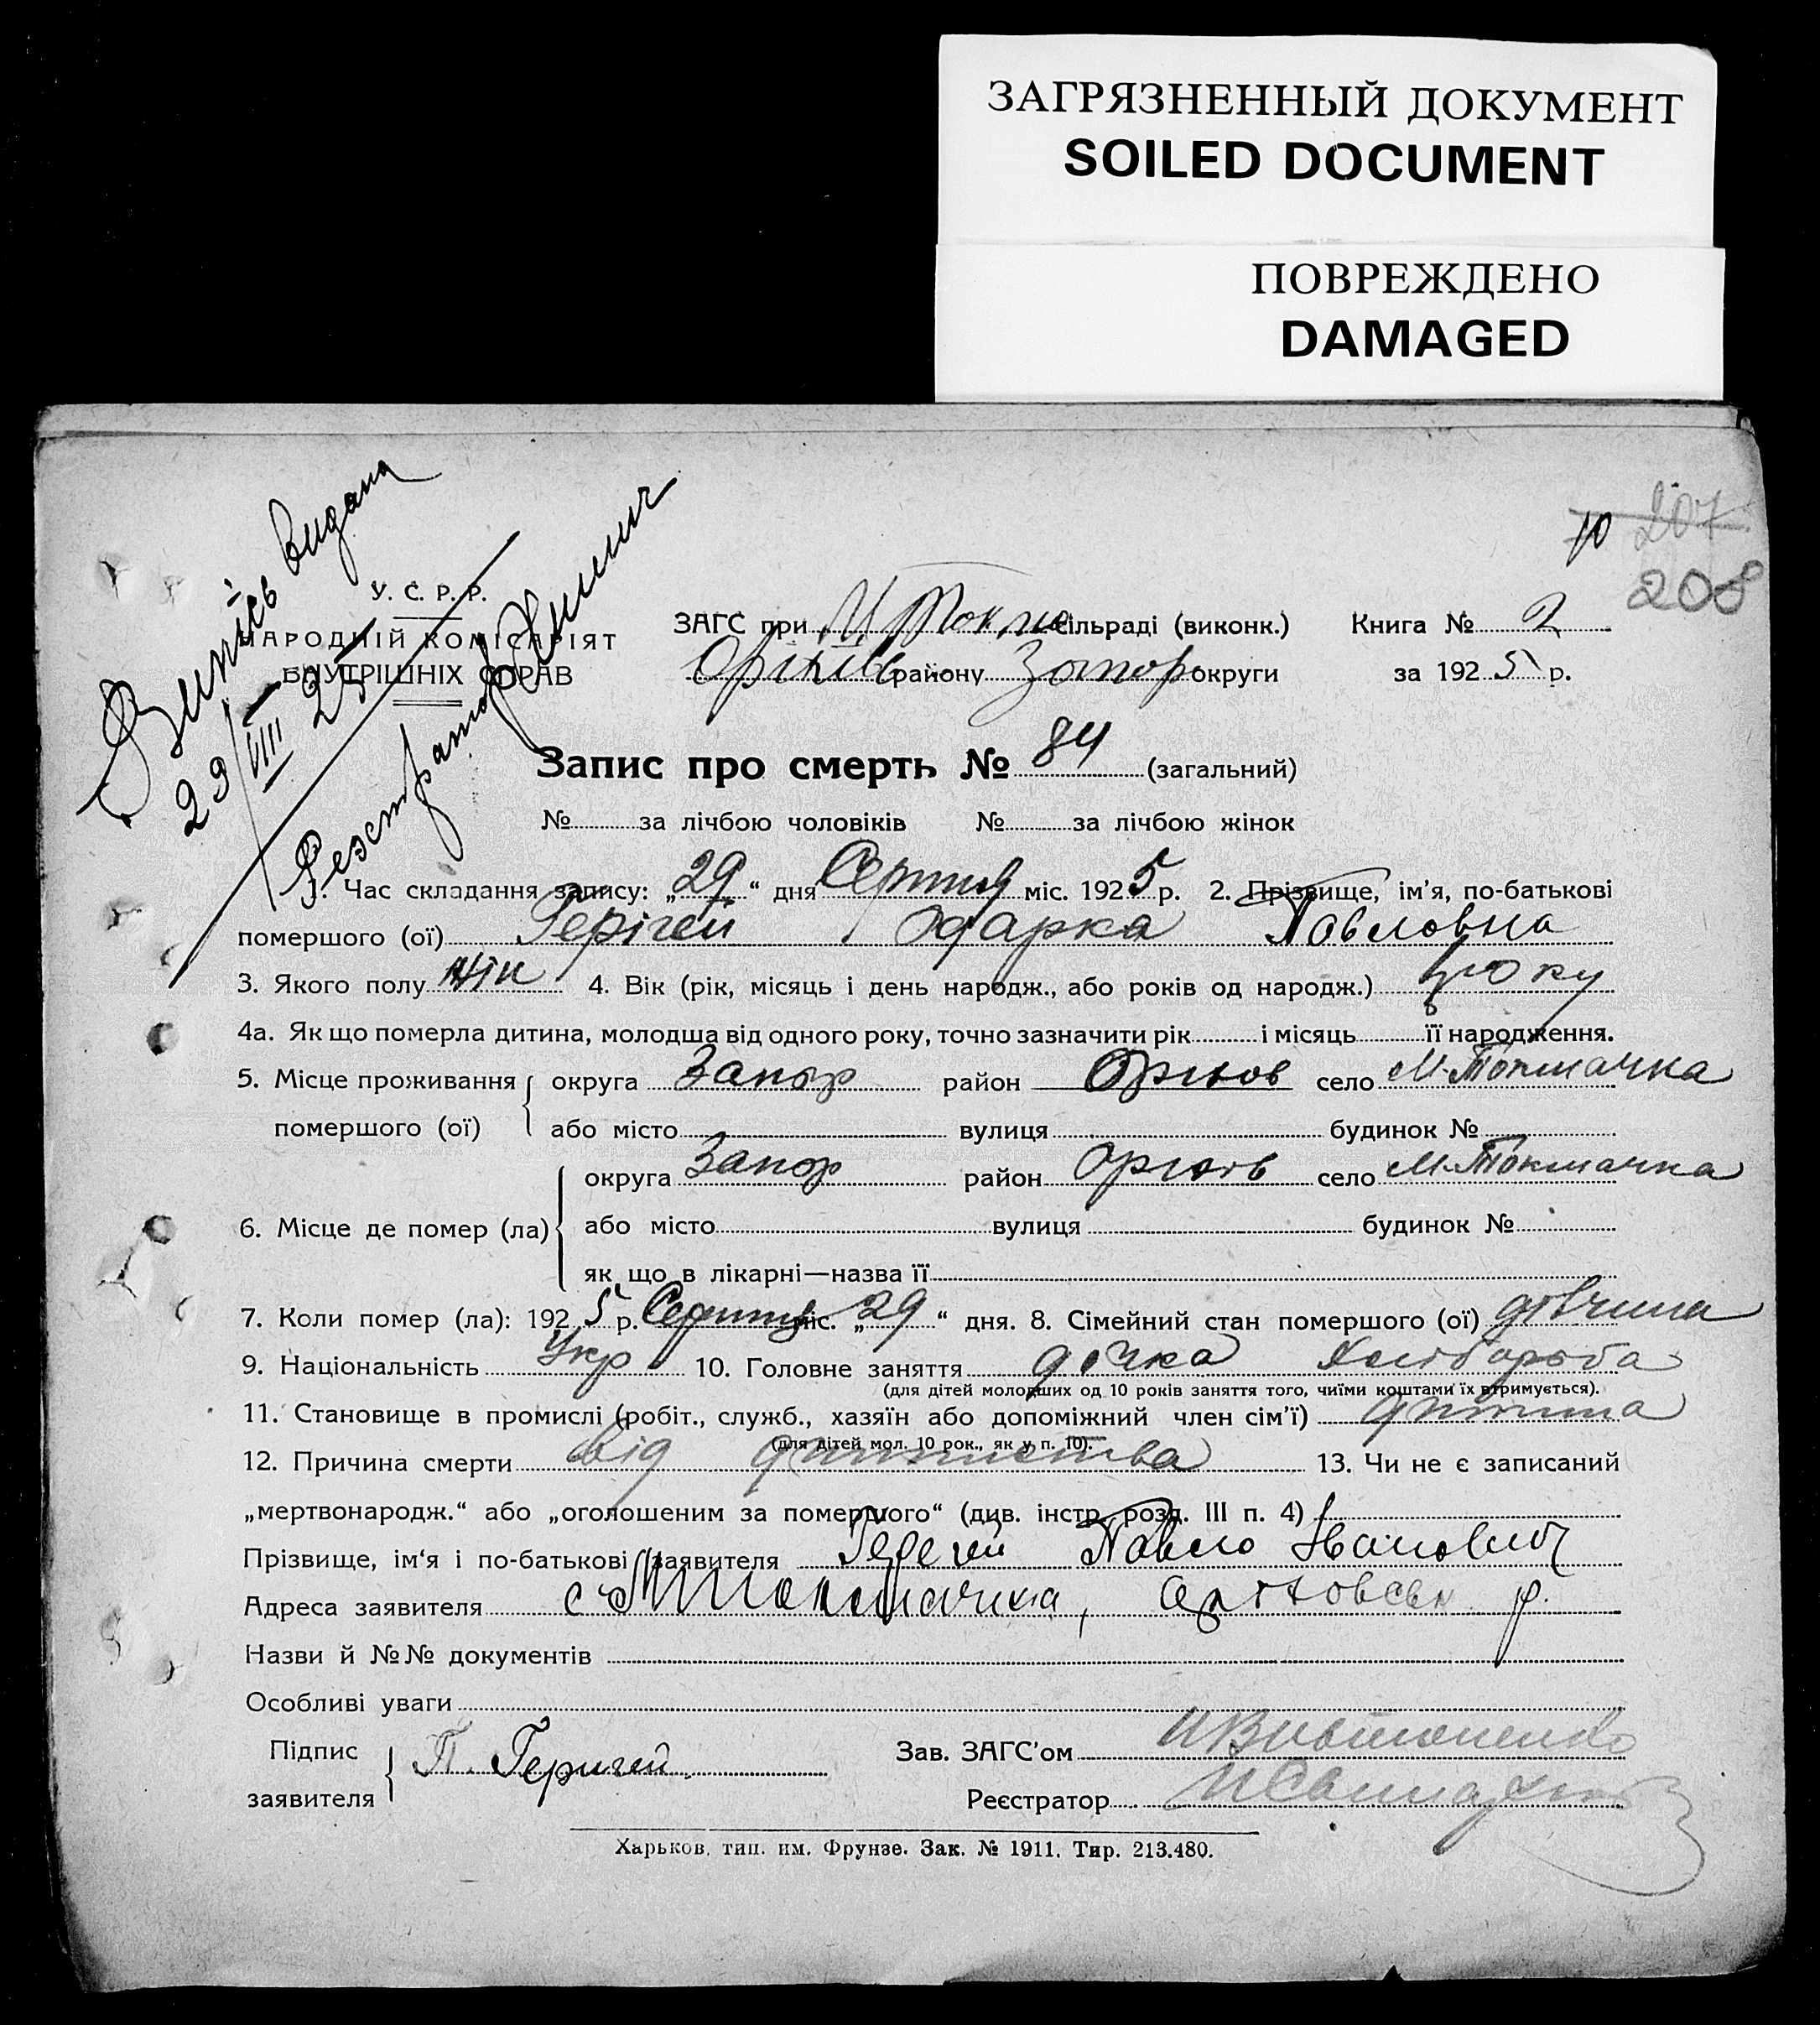 ЗАГРЯЗНЕННЫЙ ДОКУМЕНТ
SOILED DOCUMENT
ПОВРЕЖДЕНО
DAMAGED
Випісь видана
29/VIII 25
10 207
208
У. С. Р. Р.
НАРОДНІЙ КОМІСАРІЯТ
ВНУТРІШНІХ СПРАВ
ЗАГС при М Токма сільраді (виконк.) Книга № 2
Оріхів району Запор округи за 1925 р.
Запис про смерть № 84 (загальний)
№ за лічбою чоловіків № за лічбою жінок
1. Час складання запису: „29“ дня Серпня міс. 1925 р. 2. Прізвище, ім’я, по-батькові
помершого (ої) Геріген Одарка Павловна
3. Якого полу жін 4. Вік (рік, місяць і день народж., або років од народж.) року
4а. Як що померла дитина, молодша від одного року, точно зазначити рік і місяць її народження.
5. Місце проживання округа Запор район Оріхов село М-Токмачка
помершого (ої) або місто вулиця будинок №
округа Запор район Оріхів село М-Токмачка
6. Місце де помер (ла) або місто вулиця будинок №
як що в лікарні—назва її
7. Коли помер (ла): 1925 р. Серпня міс. „29“ дня. 8. Сімейний стан помершого (ої) дівчина
9. Національність Укр 10. Головне заняття дочка хлібороба
(для дітей молодших од 10 років заняття того, чиїми коштами їх втримується).
11. Становище в промислі (робіт., служб., хазяїн або допоміжний член сім’ї) дитина
(для дітей мол. 10 рок., як у п. 10).
12. Причина смерти від 13. Чи не є записаний
„мертвонародж.“ або „оголошеним за помершого“ (див. інстр. розд. III п. 4)
Прізвище, ім‘я і по-батькові заявителя Павло Іванович
Адреса заявителя с М Токмачка, р.
Назви й №№ документів
Особливі уваги
Підпис П. Геригей Зав. ЗАГС’ом
заявителя Реєстратор
Харьков, тип. им. Фрунзе. Зак. № 1911. Тир. 213.480.